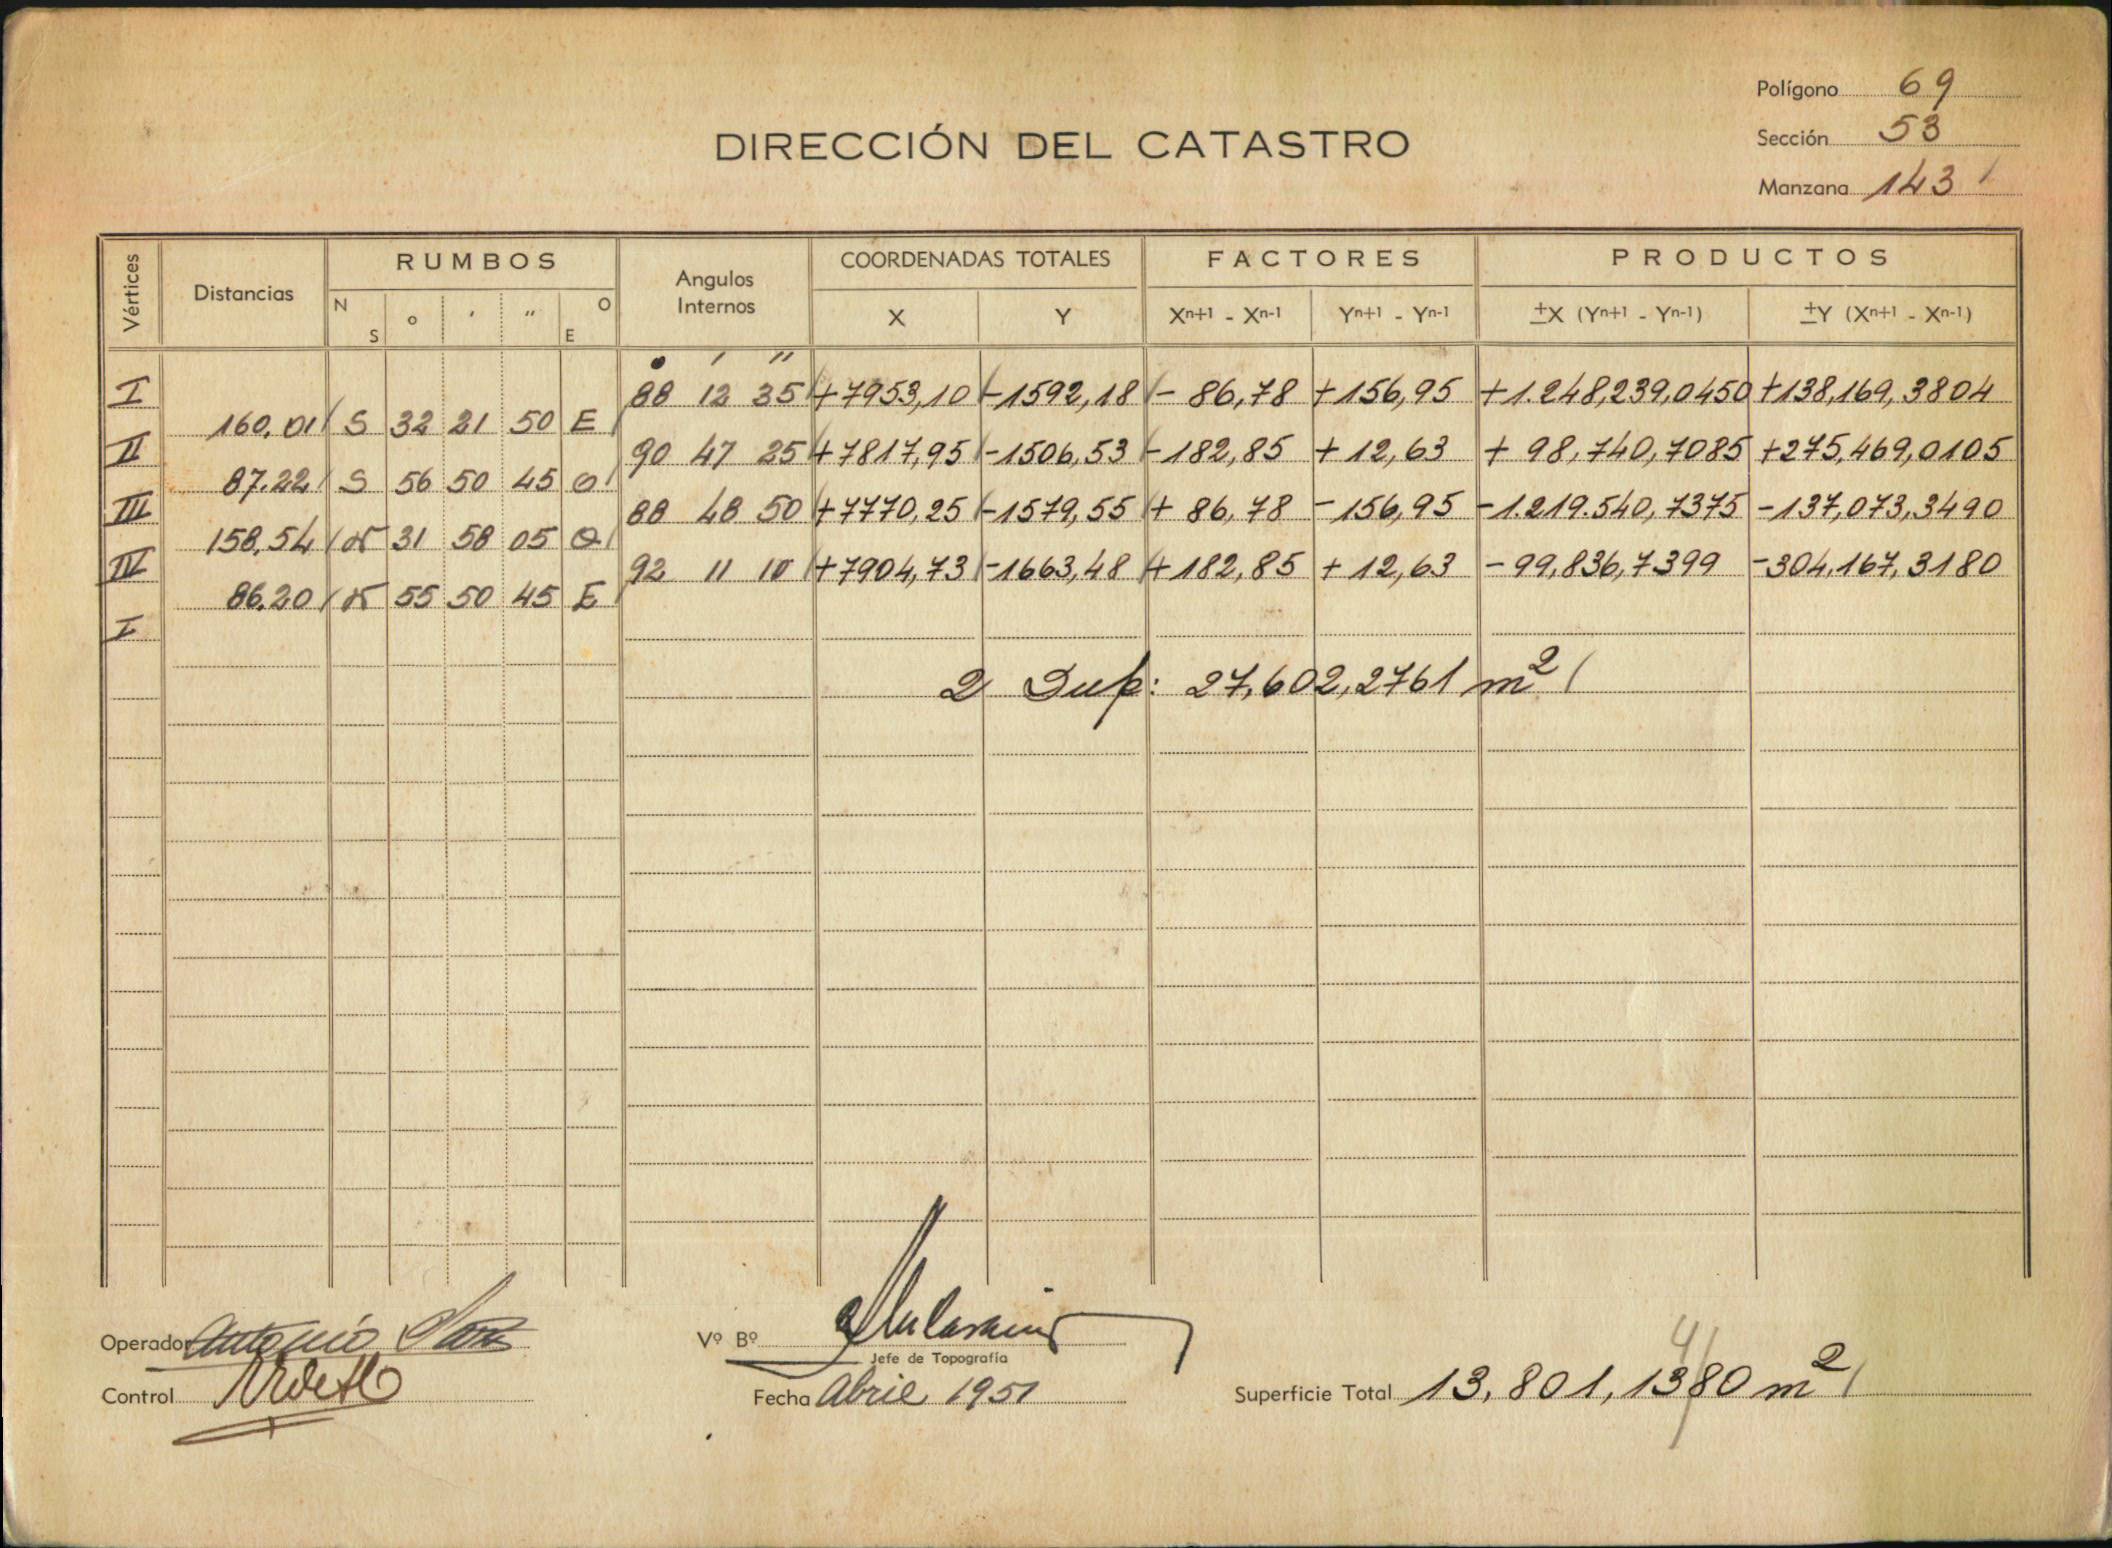 Polígono 69
Sección 53
Manzana 143
DIRECCIÓN DEL CATASTRO
Vértices Distancias RUMBOS Angulos Internos COORDENADAS TOTALES FACTORES PRODUCTOS
N S o ′ ″ O E X Y Xn+1 - Xn-1 Yn+1 - Yn-1 ±X (Yn+1 - Yn-1) ±Y (Xn+1 - Xn-1)
o ′ ″
I 88 12 35 +7953,10 -1592,18 - 86,78 +156,95 +1.248,239,0450 +138,169,3804
160,01 S 32 21 50 E
II 90 47 25 +7817,95 -1506,53 -182,85 + 12,63 + 98,740,7085 +275,469,0105
87,22 S 56 50 45 O
III 88 48 50 +7770,25 -1579,55 + 86,78 -156,95 -1.219.540,7375 -137,073,3490
158,54 N 31 58 05 O
IV 92 11 10 +7904,73 -1663,48 +182,85 + 12,63 -99,836,7399 -304,167,3180
86,20 N 55 50 45 E
I
2 Sup: 27,602,2761 m²
Operador Antonio
Vº Bº
Jefe de Topografía
Control
Fecha Abril 1951
Superficie Total 13,801,1380 m²
4